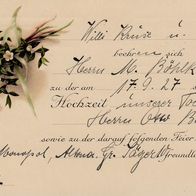 Willi Krüse u.
beehren sich
Herrn M. Böhlk
zu der am 17.9.27 s
Hochzeit unserer Toc
Herrn Otto B
sowie zu der darauf folgenden Feier
Monopol, Altona, Gr. Jägerstr. freundl